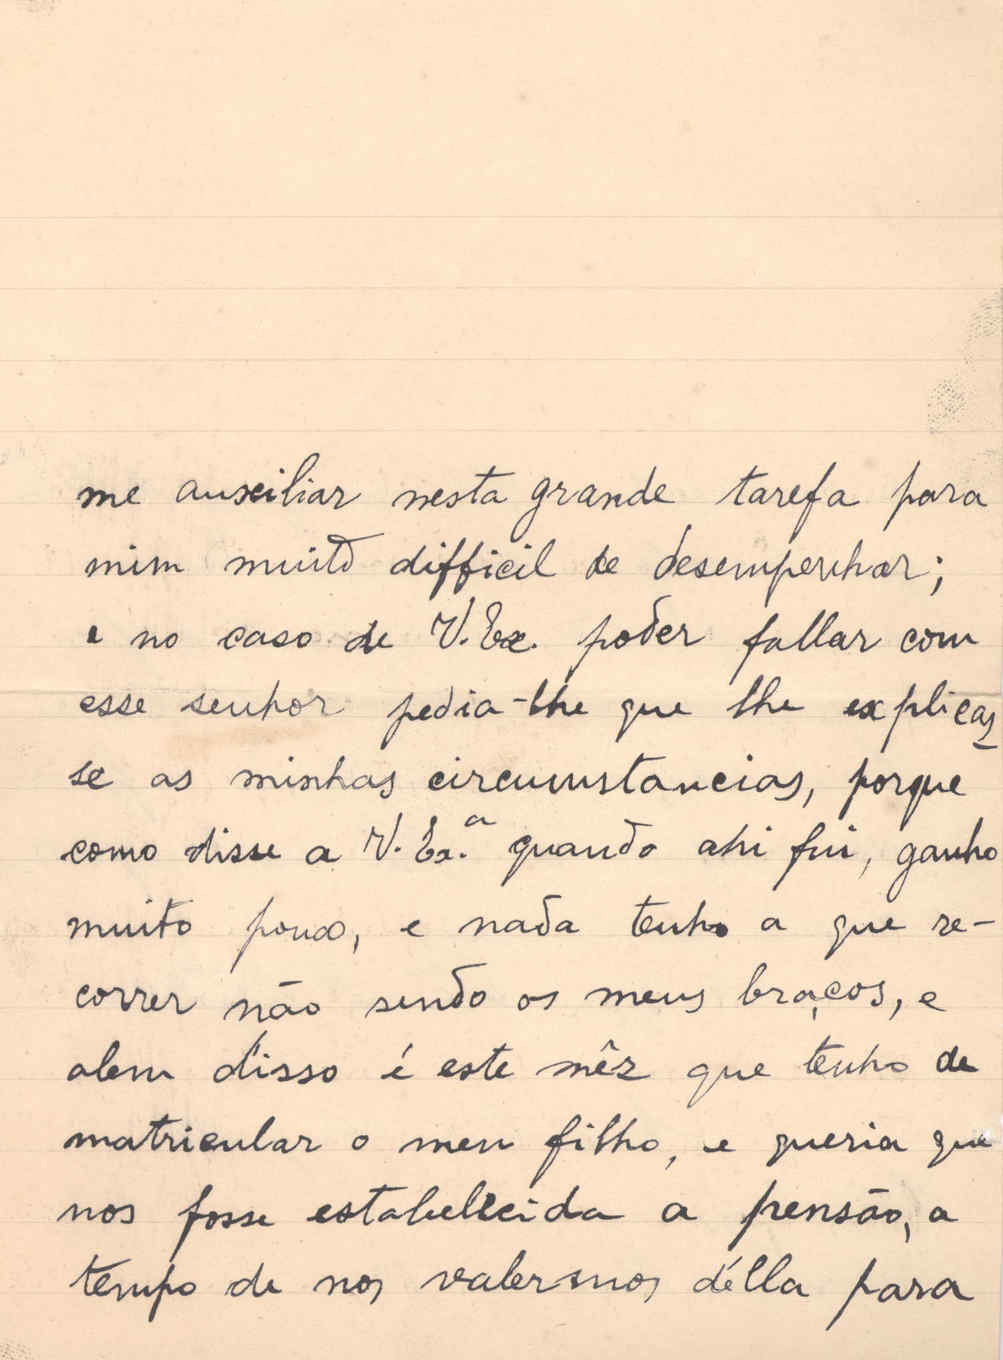 me auxiliar nesta grande tarefa para
mim muito difficil de desempenhar;
e no caso de V. Ex. poder fallar com
esse senhor pedia-lhe que lhe explicas
se as minhas circumstancias, porque
como disse a V. Ex.ª quando ahi fui, ganho
muito pouco, e nada tenho a que re-
correr não sendo os meus braços, e
alem d'isso é este mêz que tenho de
matricular o meu filho, e queria que
nos fosse estabellecida a pensão, a
tempo de nos valermos d'élla para